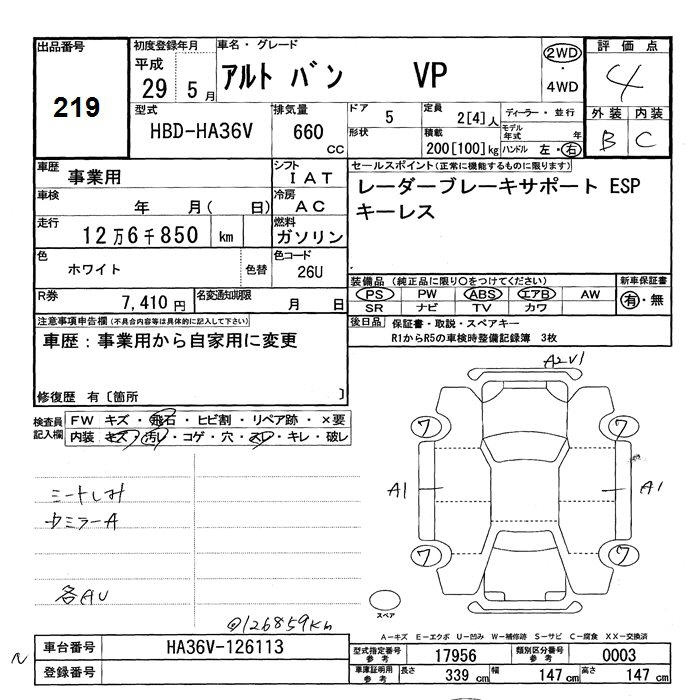 出品番号
219
初度登録年月
平成
29 5月
車名・グレード
アルト バン VP
2WD
・
4WD
評価点
4
型式
HBD-HA36V
排気量
660
cc
ドア 5
形状
定員
2[4]人
積載
200[100]kg
ディーラー・並行
モデル年式 年
ハンドル 左・右
外装 内装
B C
車歴 事業用
シフト
IAT
車検
年 月( 日)
冷房
AC
走行
12万6千850 km
燃料
ガソリン
色
ホワイト
色替
色コード
26U
R券
7,410円
名変通知期限
月 日
セールスポイント(正常に機能するものに限ります)
レーダーブレーキサポート ESP
キーレス
装備品(純正品に限り○をつけてください)
新車保証書
PS PW ABS エアB AW
有・無
SR ナビ TV カワ
後日品 保証書・取説・スペアキー
R1からR5の車検時整備記録簿 3枚
注意事項申告欄(不具合内容等は具体的に記入して下さい)
車歴:事業用から自家用に変更
修復歴 有〔箇所 〕
検査員記入欄
FW キズ・飛石・ヒビ割・リペア跡・×要
内装 キズ・汚レ・コゲ・穴・スレ・キレ・破レ
A2V1
ワ ワ
A1 A1
ワ ワ
シートしみ
ミラーA
各AU
@126859km
スペア
A-キズ E-エクボ U-凹み W-補修跡 S-サビ C-腐食 XX-交換済
車台番号 HA36V-126113
登録番号
型式指定番号参考 17956
類別区分番号参考 0003
車庫証明用参考 長さ 339cm 幅 147cm 高さ 147cm